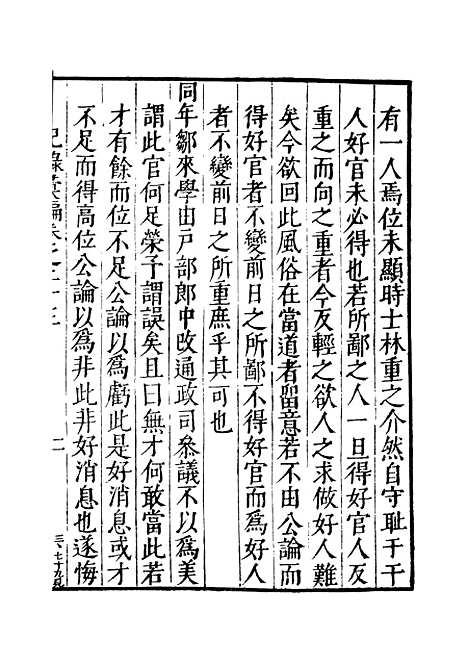 有一人焉位未顯時士林重之介然自守耻干干
人好官未必得也若所鄙之人一旦得好官人反
重之而向之重者今反輕之欲人之求做好人難
矣今欲回此風俗在當道者留意若不由公論而
得好官者不變前日之所鄙不得好官而爲好人
者不變前日之所重庶乎其可也
同年鄒來學由戸部郎中改通政司叅議不以爲美
謂此官何足榮予謂誤矣且曰無才何敢當此若
才有餘而位不足公論以爲虧此是好消息或才
不足而得高位公論以爲非此非好消息也遂悔
紀錄彙編卷之二十三
二